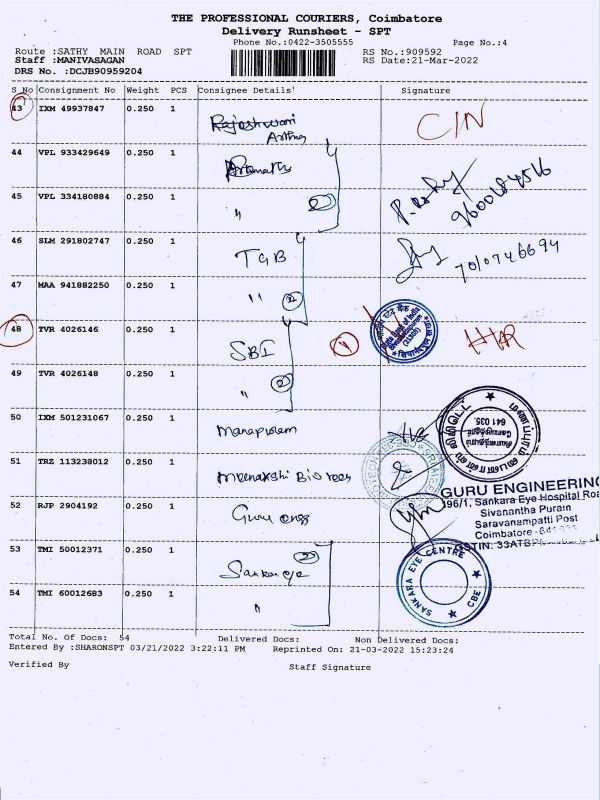 THE PROFESSIONAL COURIERS, Coimbatore
Delivery Runsheet - SPT
Phone No.:0422-3505555 Page No.:4
Route :SATHY MAIN ROAD SPT RS No.:909592
Staff :MANIVASAGAN RS Date:21-Mar-2022
DRS No. :DCJB90959204
S No Consignment No Weight PCS Consignee Details' Signature
43 IXM 49937847 0.250 1 Rajeshwari CIN
44 VPL 933429649 0.250 1
45 VPL 334180884 0.250 1 " 2 9600184516
46 SLM 291802747 0.250 1 TGB 7010746694
47 MAA 941882250 0.250 1 " 2
48 TVR 4026146 0.250 1 SBI
49 TVR 4026148 0.250 1 " 2
50 IXM 501231067 0.250 1 641 035.
51 TRZ 113238012 0.250 1 Meenakshi
52 RJP 2904192 0.250 1 Guru engg
GURU ENGINEERING
396/1, Sankara Eye Hospital Roa
Sivanantha Puram
Saravanampatti Post
Coimbatore -641
GSTIN: 33ATBP
53 TMI 50012371 0.250 1 Sankara eye 2 SANKARA EYE CENTRE CBE
54 TMI 60012683 0.250 1 "
Total No. Of Docs: 54 Delivered Docs: Non Delivered Docs:
Entered By :SHARONSPT 03/21/2022 3:22:11 PM Reprinted On: 21-03-2022 15:23:24
Verified By Staff Signature